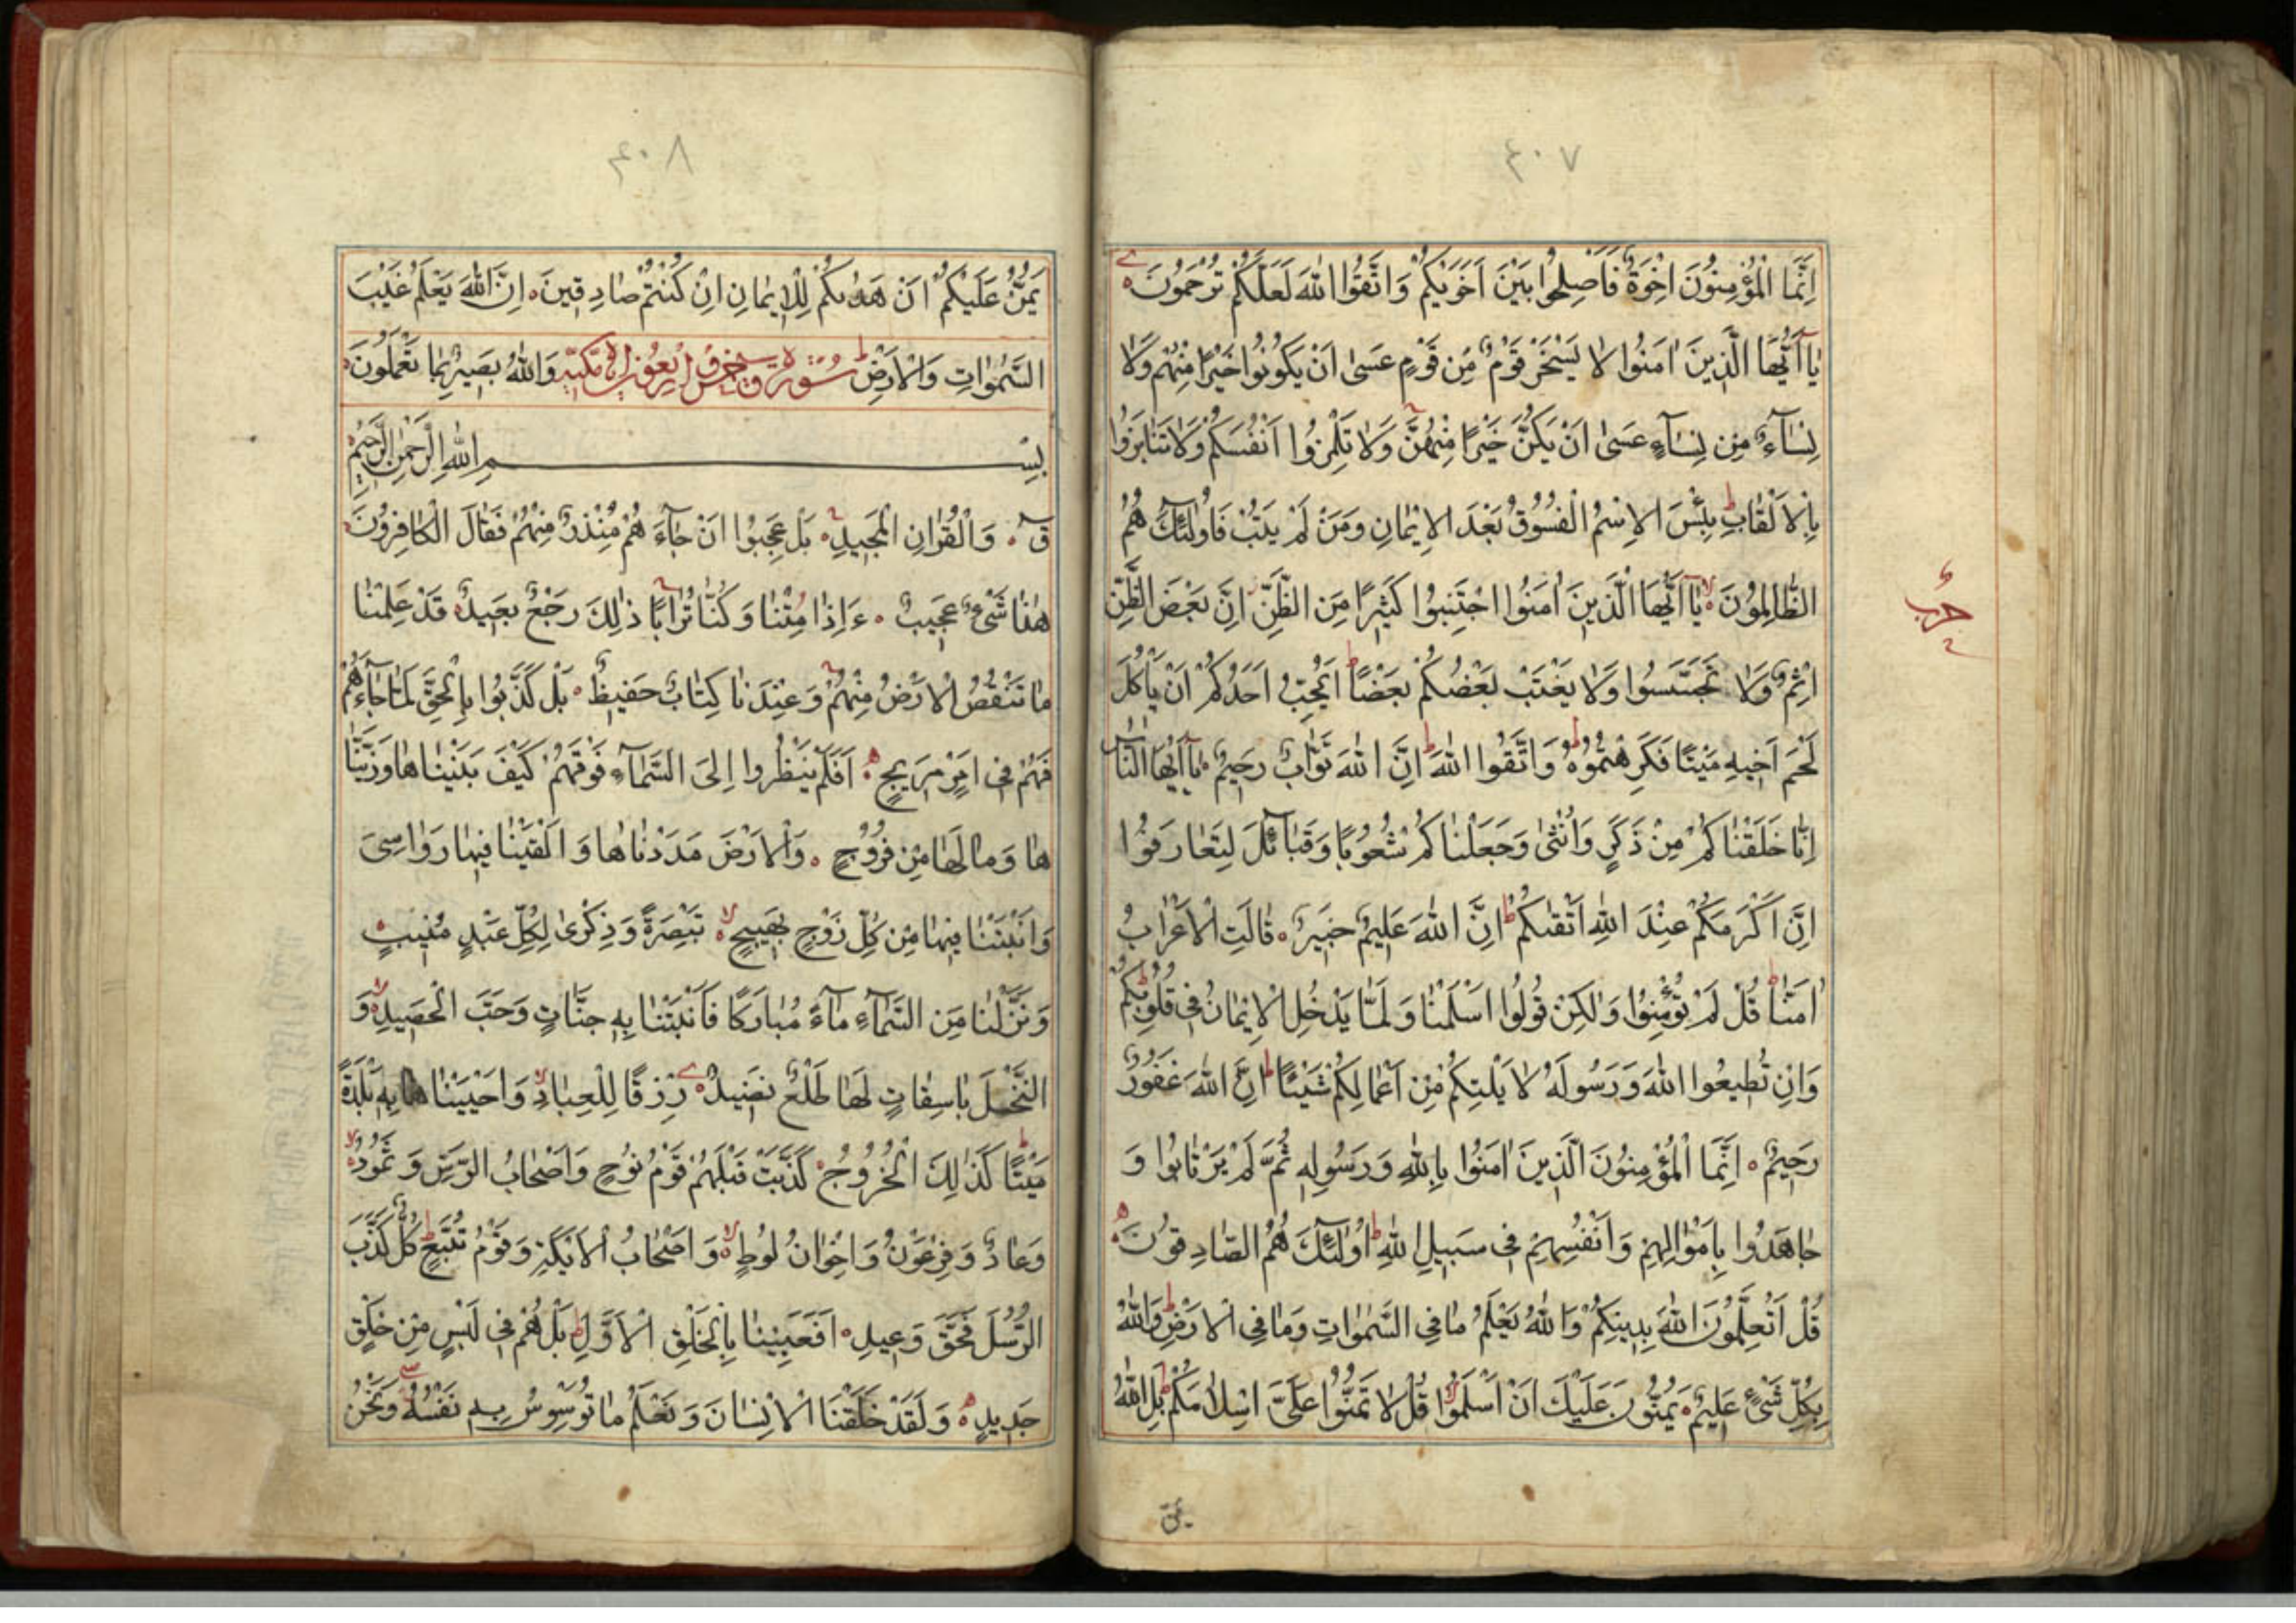 ٤٠٧
اِنَّمَا الْمُؤْمِنُونَ اِخْوَةٌ فَاَصْلِحُوا بَيْنَ اَخَوَيْكُمْ وَاتَّقُوا اللّٰهَ لَعَلَّكُمْ تُرْحَمُونَ
يَٓا اَيُّهَا الَّذِينَ اٰمَنُوا لَا يَسْخَرْ قَوْمٌ مِنْ قَوْمٍ عَسٰى اَنْ يَكُونُوا خَيْرًا مِنْهُمْ وَلَا
نِسَٓاءٌ مِنْ نِسَٓاءٍ عَسٰى اَنْ يَكُنَّ خَيْرًا مِنْهُنَّ وَلَا تَلْمِزُوا اَنْفُسَكُمْ وَلَا تَنَابَزُوا
بِالْاَلْقَابِ بِئْسَ الْاِسْمُ الْفُسُوقُ بَعْدَ الْاِيمَانِ وَمَنْ لَمْ يَتُبْ فَاُولٰٓئِكَ هُمُ
الظَّالِمُونَ يَٓا اَيُّهَا الَّذِينَ اٰمَنُوا اجْتَنِبُوا كَثِيرًا مِنَ الظَّنِّ اِنَّ بَعْضَ الظَّنِّ
حزب
اِثْمٌ وَلَا تَجَسَّسُوا وَلَا يَغْتَبْ بَعْضُكُمْ بَعْضًا اَيُحِبُّ اَحَدُكُمْ اَنْ يَأْكُلَ
لَحْمَ اَخِيهِ مَيْتًا فَكَرِهْتُمُوهُ وَاتَّقُوا اللّٰهَ اِنَّ اللّٰهَ تَوَّابٌ رَحِيمٌ يَٓا اَيُّهَا النَّاسُ
اِنَّا خَلَقْنَاكُمْ مِنْ ذَكَرٍ وَاُنْثٰى وَجَعَلْنَاكُمْ شُعُوبًا وَقَبَٓائِلَ لِتَعَارَفُوا
اِنَّ اَكْرَمَكُمْ عِنْدَ اللّٰهِ اَتْقٰىكُمْ اِنَّ اللّٰهَ عَلِيمٌ خَبِيرٌ قَالَتِ الْاَعْرَابُ
اٰمَنَّا قُلْ لَمْ تُؤْمِنُوا وَلٰكِنْ قُولُوا اَسْلَمْنَا وَلَمَّا يَدْخُلِ الْاِيمَانُ فِى قُلُوبِكُمْ
وَاِنْ تُطِيعُوا اللّٰهَ وَرَسُولَهُ لَا يَلِتْكُمْ مِنْ اَعْمَالِكُمْ شَيْئًا اِنَّ اللّٰهَ غَفُورٌ
رَحِيمٌ اِنَّمَا الْمُؤْمِنُونَ الَّذِينَ اٰمَنُوا بِاللّٰهِ وَرَسُولِهِ ثُمَّ لَمْ يَرْتَابُوا وَ
جَاهَدُوا بِاَمْوَالِهِمْ وَاَنْفُسِهِمْ فِى سَبِيلِ اللّٰهِ اُولٰٓئِكَ هُمُ الصَّادِقُونَ
قُلْ اَتُعَلِّمُونَ اللّٰهَ بِدِينِكُمْ وَاللّٰهُ يَعْلَمُ مَا فِى السَّمٰوَاتِ وَمَا فِى الْاَرْضِ وَاللّٰهُ
بِكُلِّ شَىْءٍ عَلِيمٌ يَمُنُّونَ عَلَيْكَ اَنْ اَسْلَمُوا قُلْ لَا تَمُنُّوا عَلَىَّ اِسْلَامَكُمْ بَلِ اللّٰهُ
٤٠٨
يَمُنُّ عَلَيْكُمْ اَنْ هَدٰىكُمْ لِلْاِيمَانِ اِنْ كُنْتُمْ صَادِقِينَ اِنَّ اللّٰهَ يَعْلَمُ غَيْبَ
السَّمٰوَاتِ وَالْاَرْضِ سُورَةُ ق خمس اربعون اية مكية وَاللّٰهُ بَصِيرٌ بِمَا تَعْمَلُونَ
بِسْمِ اللّٰهِ الرَّحْمٰنِ الرَّحِيمِ
قٓ وَالْقُرْاٰنِ الْمَجِيدِ بَلْ عَجِبُوا اَنْ جَٓاءَهُمْ مُنْذِرٌ مِنْهُمْ فَقَالَ الْكَافِرُونَ
هٰذَا شَىْءٌ عَجِيبٌ ءَاِذَا مِتْنَا وَكُنَّا تُرَابًا ذٰلِكَ رَجْعٌ بَعِيدٌ قَدْ عَلِمْنَا
مَا تَنْقُصُ الْاَرْضُ مِنْهُمْ وَعِنْدَنَا كِتَابٌ حَفِيظٌ بَلْ كَذَّبُوا بِالْحَقِّ لَمَّا جَٓاءَهُمْ
فَهُمْ فِى اَمْرٍ مَرِيجٍ اَفَلَمْ يَنْظُرُوا اِلَى السَّمَٓاءِ فَوْقَهُمْ كَيْفَ بَنَيْنَاهَا وَزَيَّنَّا
هَا وَمَا لَهَا مِنْ فُرُوجٍ وَالْاَرْضَ مَدَدْنَاهَا وَاَلْقَيْنَا فِيهَا رَوَاسِىَ
وَاَنْبَتْنَا فِيهَا مِنْ كُلِّ زَوْجٍ بَهِيجٍ تَبْصِرَةً وَذِكْرٰى لِكُلِّ عَبْدٍ مُنِيبٍ
وَنَزَّلْنَا مِنَ السَّمَٓاءِ مَٓاءً مُبَارَكًا فَاَنْبَتْنَا بِهِ جَنَّاتٍ وَحَبَّ الْحَصِيدِ وَ
النَّخْلَ بَاسِقَاتٍ لَهَا طَلْعٌ نَضِيدٌ رِزْقًا لِلْعِبَادِ وَاَحْيَيْنَا بِهِ بَلْدَةً
مَيْتًا كَذٰلِكَ الْخُرُوجُ كَذَّبَتْ قَبْلَهُمْ قَوْمُ نُوحٍ وَاَصْحَابُ الرَّسِّ وَثَمُودُ
وَعَادٌ وَفِرْعَوْنُ وَاِخْوَانُ لُوطٍ وَاَصْحَابُ الْاَيْكَةِ وَقَوْمُ تُبَّعٍ كُلٌّ كَذَّبَ
الرُّسُلَ فَحَقَّ وَعِيدِ اَفَعَيِينَا بِالْخَلْقِ الْاَوَّلِ بَلْ هُمْ فِى لَبْسٍ مِنْ خَلْقٍ
جَدِيدٍ وَلَقَدْ خَلَقْنَا الْاِنْسَانَ وَنَعْلَمُ مَا تُوَسْوِسُ بِهِ نَفْسُهُ وَنَحْنُ